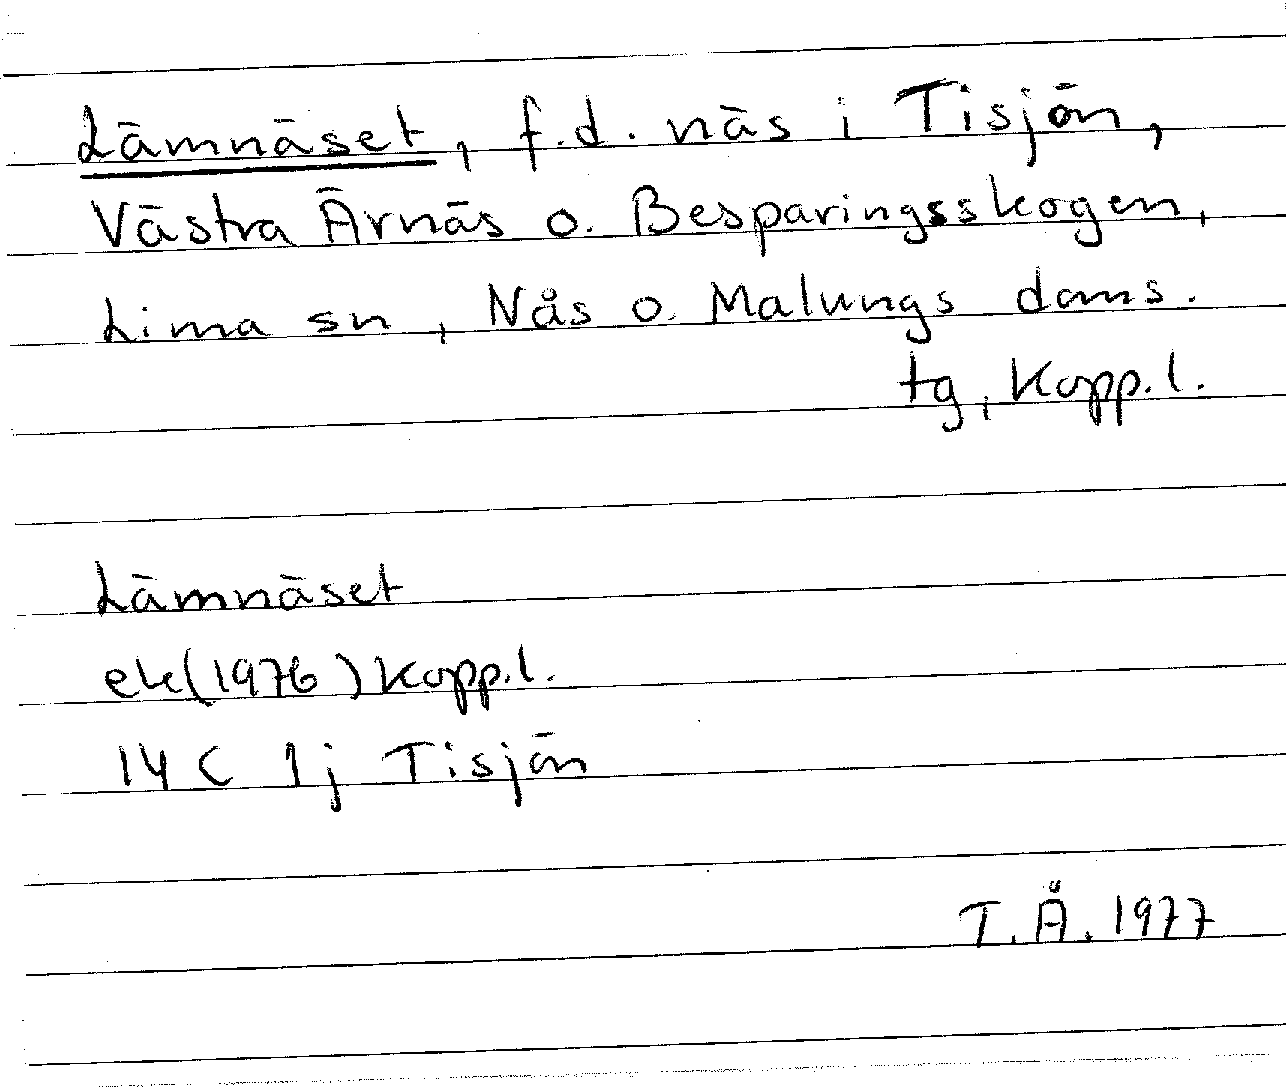 Lämnäset, f.d. näs i Tisjön,
Västra Ärnäs o. Besparingsskogen,
Lima sn, Nås o. Malungs doms.
tg, Kopp.l.
Lämnäset
ek (1976) Kopp.l.
14 C 1j Tisjön
T.Å. 1977